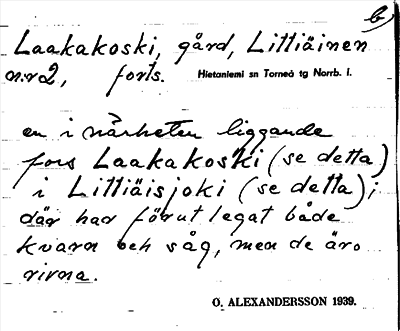 b)
Laakakoski, gård, Littiäinen
n:r 2, forts. Hietaniemi sn Torneå tg Norrb. l.
en i närheten liggande
fors Laakakoski (se detta)
i Littiäisjoki (se detta);
där har förut legat både
kvarn och såg, men de äro
rivna.
O. ALEXANDERSSON 1939.